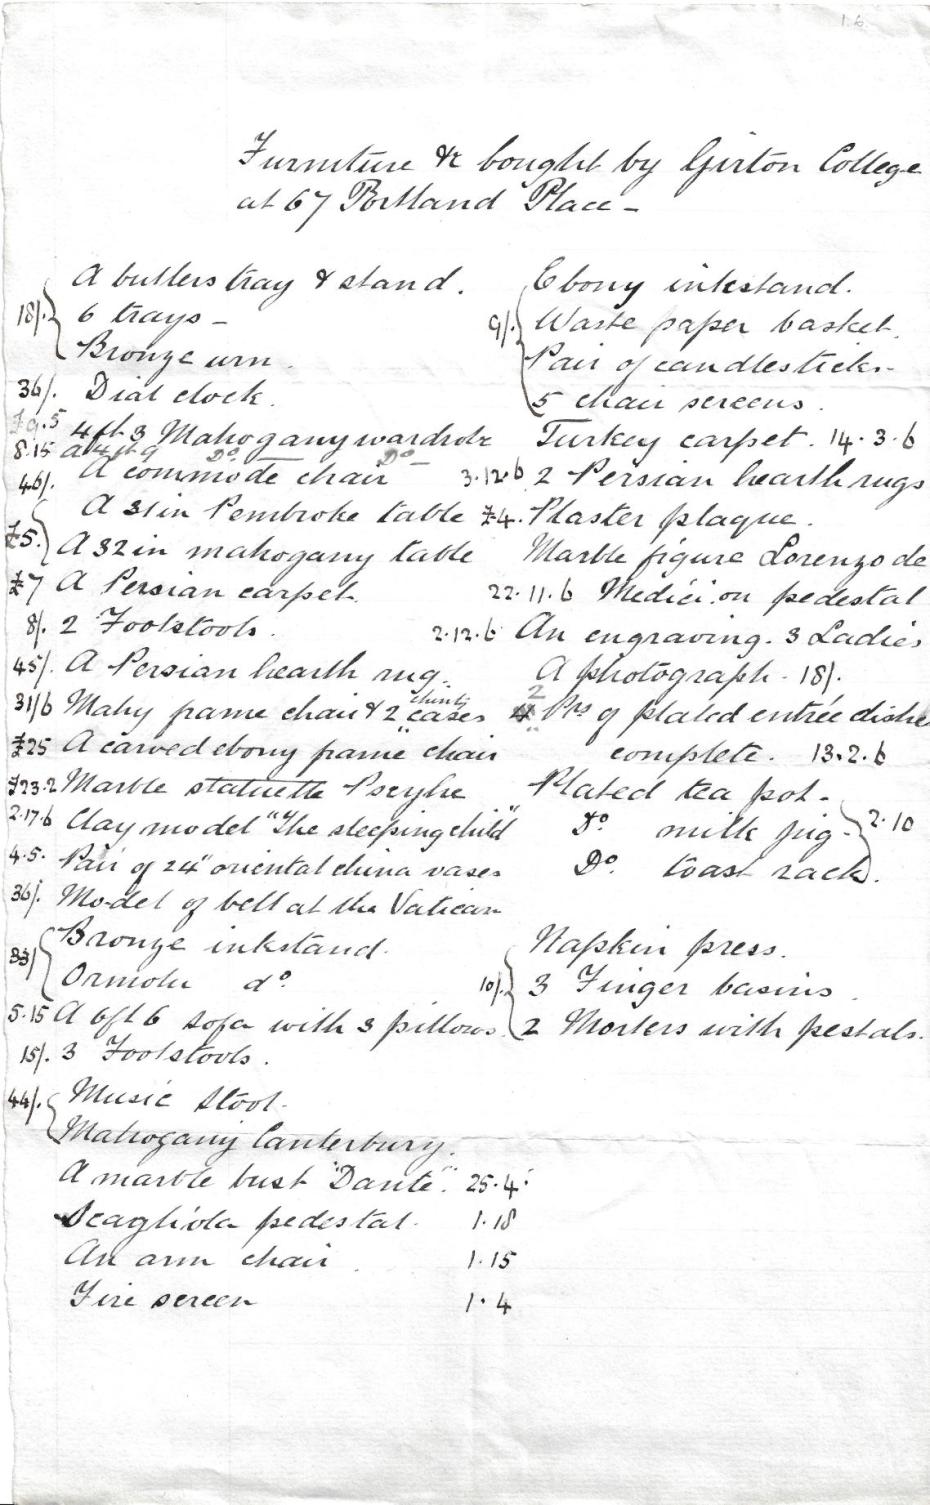 1.6.
Furniture &c bought by Girton College
at 67 Portland Place -
A butlers tray & stand.
18/. 6 trays -
Bronze urn.
36/. Dial clock.
£9.5 4ft 3 Mahogany wardrobe
8.15 a 4ft 9 Do. Do -
46/. A commode chair
A 31in Pembroke table
£5. A 32 in mahogany table
£7 A Persian carpet.
8/. 2 Footstools.
45/. A Persian hearth rug.
31/6 Mahy frame chair & 2 chintz cases
£25 A carved ebony frame chair
£23.2 Marble statuette Psyche
2.17.6 Clay model "The sleeping child"
4.5. Pair of 24" oriental china vases
36/. Model of bell at the Vatican
33/ Bronze inkstand.
Ormolu do.
5.15 A 6ft 6 sofa with 3 pillows.
15/. 3 Footstools.
44/. Music Stool.
Mahogany Canterbury.
A marble bust "Dante". 25.4.
Scagliola pedestal. 1.18
An arm chair. 1.15
Fire screen 1.4
Ebony inkstand.
9/. Waste paper basket.
Pair of candlesticks.
5 chair screens.
Turkey carpet. 14.3.6
3.12.6 2 Persian hearth rugs
£4. Plaster plaque.
Marble figure Lorenzo de
22.11.6 Medici on pedestal
2.12.6 An engraving. 3 Ladies
A photograph - 18/.
2 Prs of plated entrée dishe
complete. 13.2.6
Plated tea pot -
Do. milk jug - 2.10
Do. toast rack.
Napkin press.
10/. 3 Finger basins.
2 Morters with pestals.